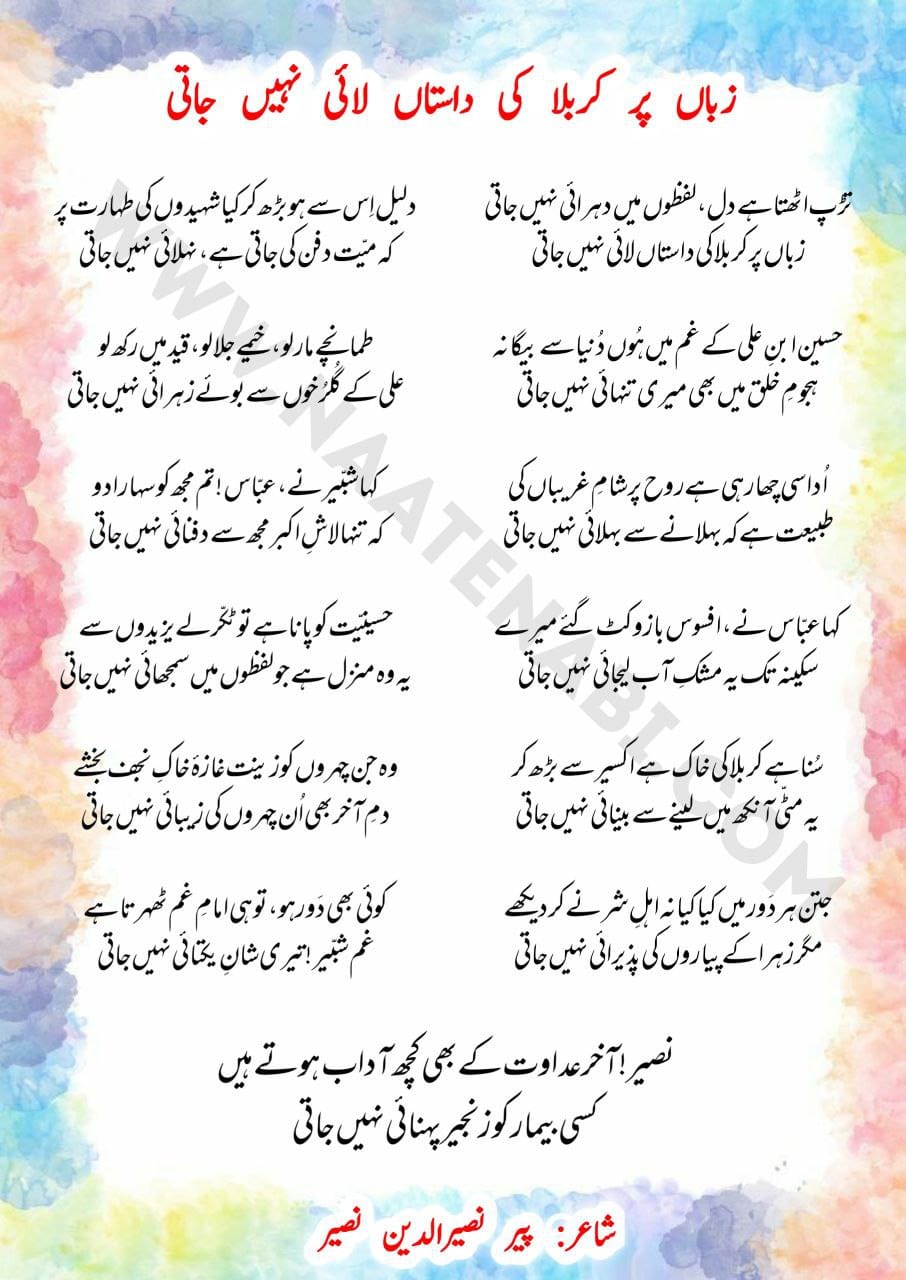 زباں پر کربلا کی داستاں لائی نہیں جاتی
تڑپ اٹھتا ہے دل، لفظوں میں دہرائی نہیں جاتی
زباں پر کربلا کی داستاں لائی نہیں جاتی
دلیل اِس سے ہو بڑھ کر کیا شہیدوں کی طہارت پر
کہ میّت دفن کی جاتی ہے، نہلائی نہیں جاتی
حسین ابنِ علی کے غم میں ہُوں دُنیا سے بیگانہ
ہجومِ خلق میں بھی میری تنہائی نہیں جاتی
طمانچے مار لو، خیمے جلا لو، قید میں رکھ لو
علی کے گُلرُخوں سے بوئے زہرائی نہیں جاتی
اُداسی چھا رہی ہے روح پر شامِ غریباں کی
طبیعت ہے کہ بہلانے سے بہلائی نہیں جاتی
کہا شبّیر نے، عبّاس! تم مجھ کو سہارا دو
کہ تنہا لاشِ اکبر مجھ سے دفنائی نہیں جاتی
کہا عبّاس نے، افسوس بازو کٹ گئے میرے
سکینہ تک یہ مشکِ آب لیجائی نہیں جاتی
حسینیّت کو پانا ہے تو ٹکّر لے یزیدوں سے
یہ وہ منزل ہے جو لفظوں میں سمجھائی نہیں جاتی
سُنا ہے کربلا کی خاک ہے اکسیر سے بڑھ کر
یہ مٹّی آنکھ میں لینے سے بینائی نہیں جاتی
وہ جن چہروں کو زینت غازۂ خاکِ نجف بخشے
دمِ آخر بھی اُن چہروں کی زیبائی نہیں جاتی
جتن ہر دَور میں کیا کیا نہ اہلِ شر نے کر دیکھے
مگر زہرا کے پیاروں کی پذیرائی نہیں جاتی
کوئی بھی دَور ہو، تو ہی امامِ غم ٹھہرتا ہے
غمِ شبّیر! تیری شانِ یکتائی نہیں جاتی
نصیر! آخر عداوت کے بھی کچھ آداب ہوتے ہیں
کسی بیمار کو زنجیر پہنائی نہیں جاتی
شاعر: پیر نصیرالدین نصیر
WWW.NAATENABI.COM